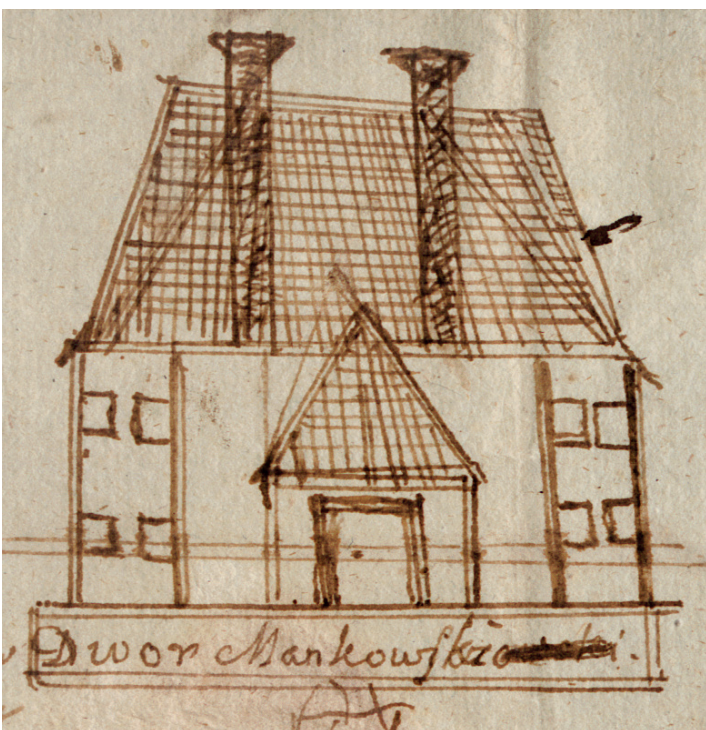 Dwor Mankowski